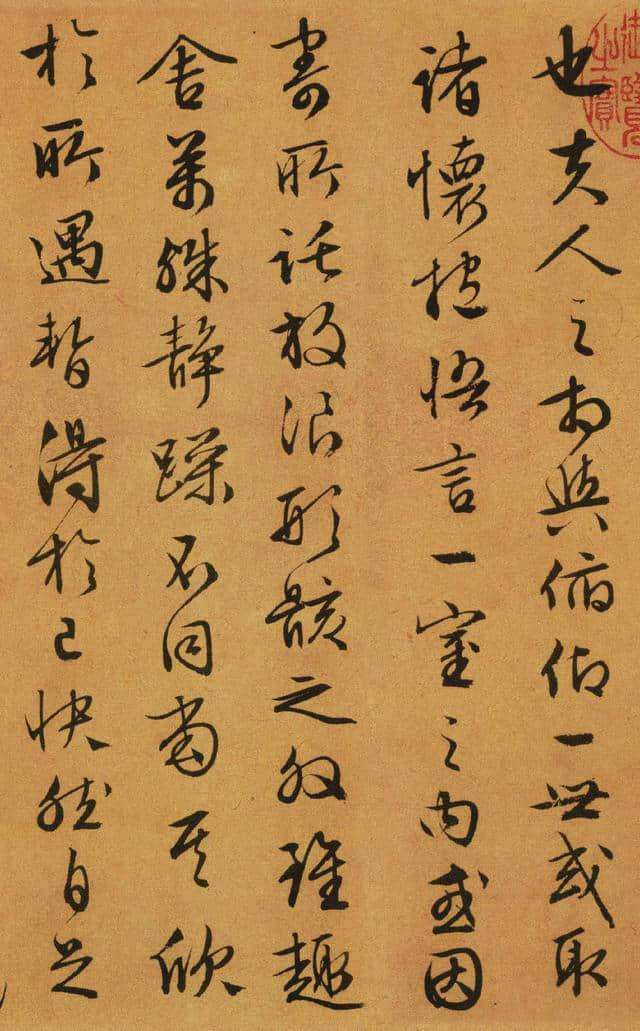 御覽
之寶
也夫人之相與俯仰一世或取
諸懷抱悟言一室之內或因
寄所託放浪形骸之外雖趣
舍萬殊靜躁不同當其欣
於所遇暫得於己快然自足